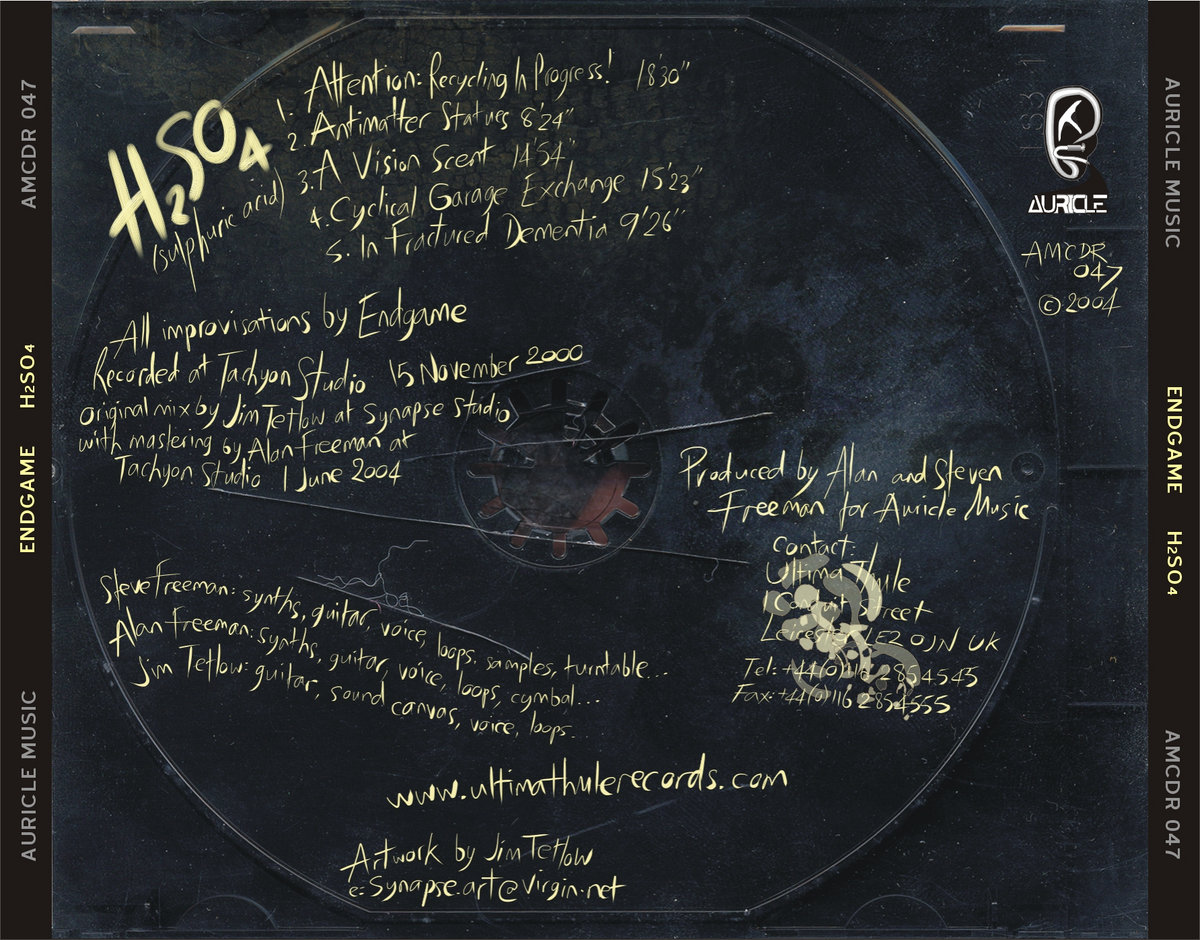 AMCDR 047
ENDGAME H2SO4
AURICLE MUSIC
H2SO4
(sulphuric acid)
1. Attention: Recycling In Progress! 18'30"
2. Antimatter Statues 8'24"
3. A Vision Scent 14'54"
4. Cyclical Garage Exchange 15'23"
5. In Fractured Dementia 9'26"
AURICLE
AMCDR
047
© 2004
All improvisations by Endgame
Recorded at Tachyon Studio 15 November 2000
original mix by Jim Tetlow at Synapse Studio
with mastering by Alan Freeman at
Tachyon Studio 1 June 2004
Produced by Alan and Steven
Freeman for Auricle Music
Contact:
Ultima Thule
1 Conduit Street
Leicester LE2 0JN UK
Tel: +44(0)116 2854545
Fax: +44(0)116 2854555
Steve Freeman: synths, guitar, voice, loops. samples, turntable...
Alan Freeman: synths, guitar, voice, loops, cymbal...
Jim Tetlow: guitar, sound canvas, voice, loops...
www.ultimathulerecords.com
Artwork by Jim Tetlow
e: Synapse.art@virgin.net
AURICLE MUSIC
ENDGAME H2SO4
AMCDR 047